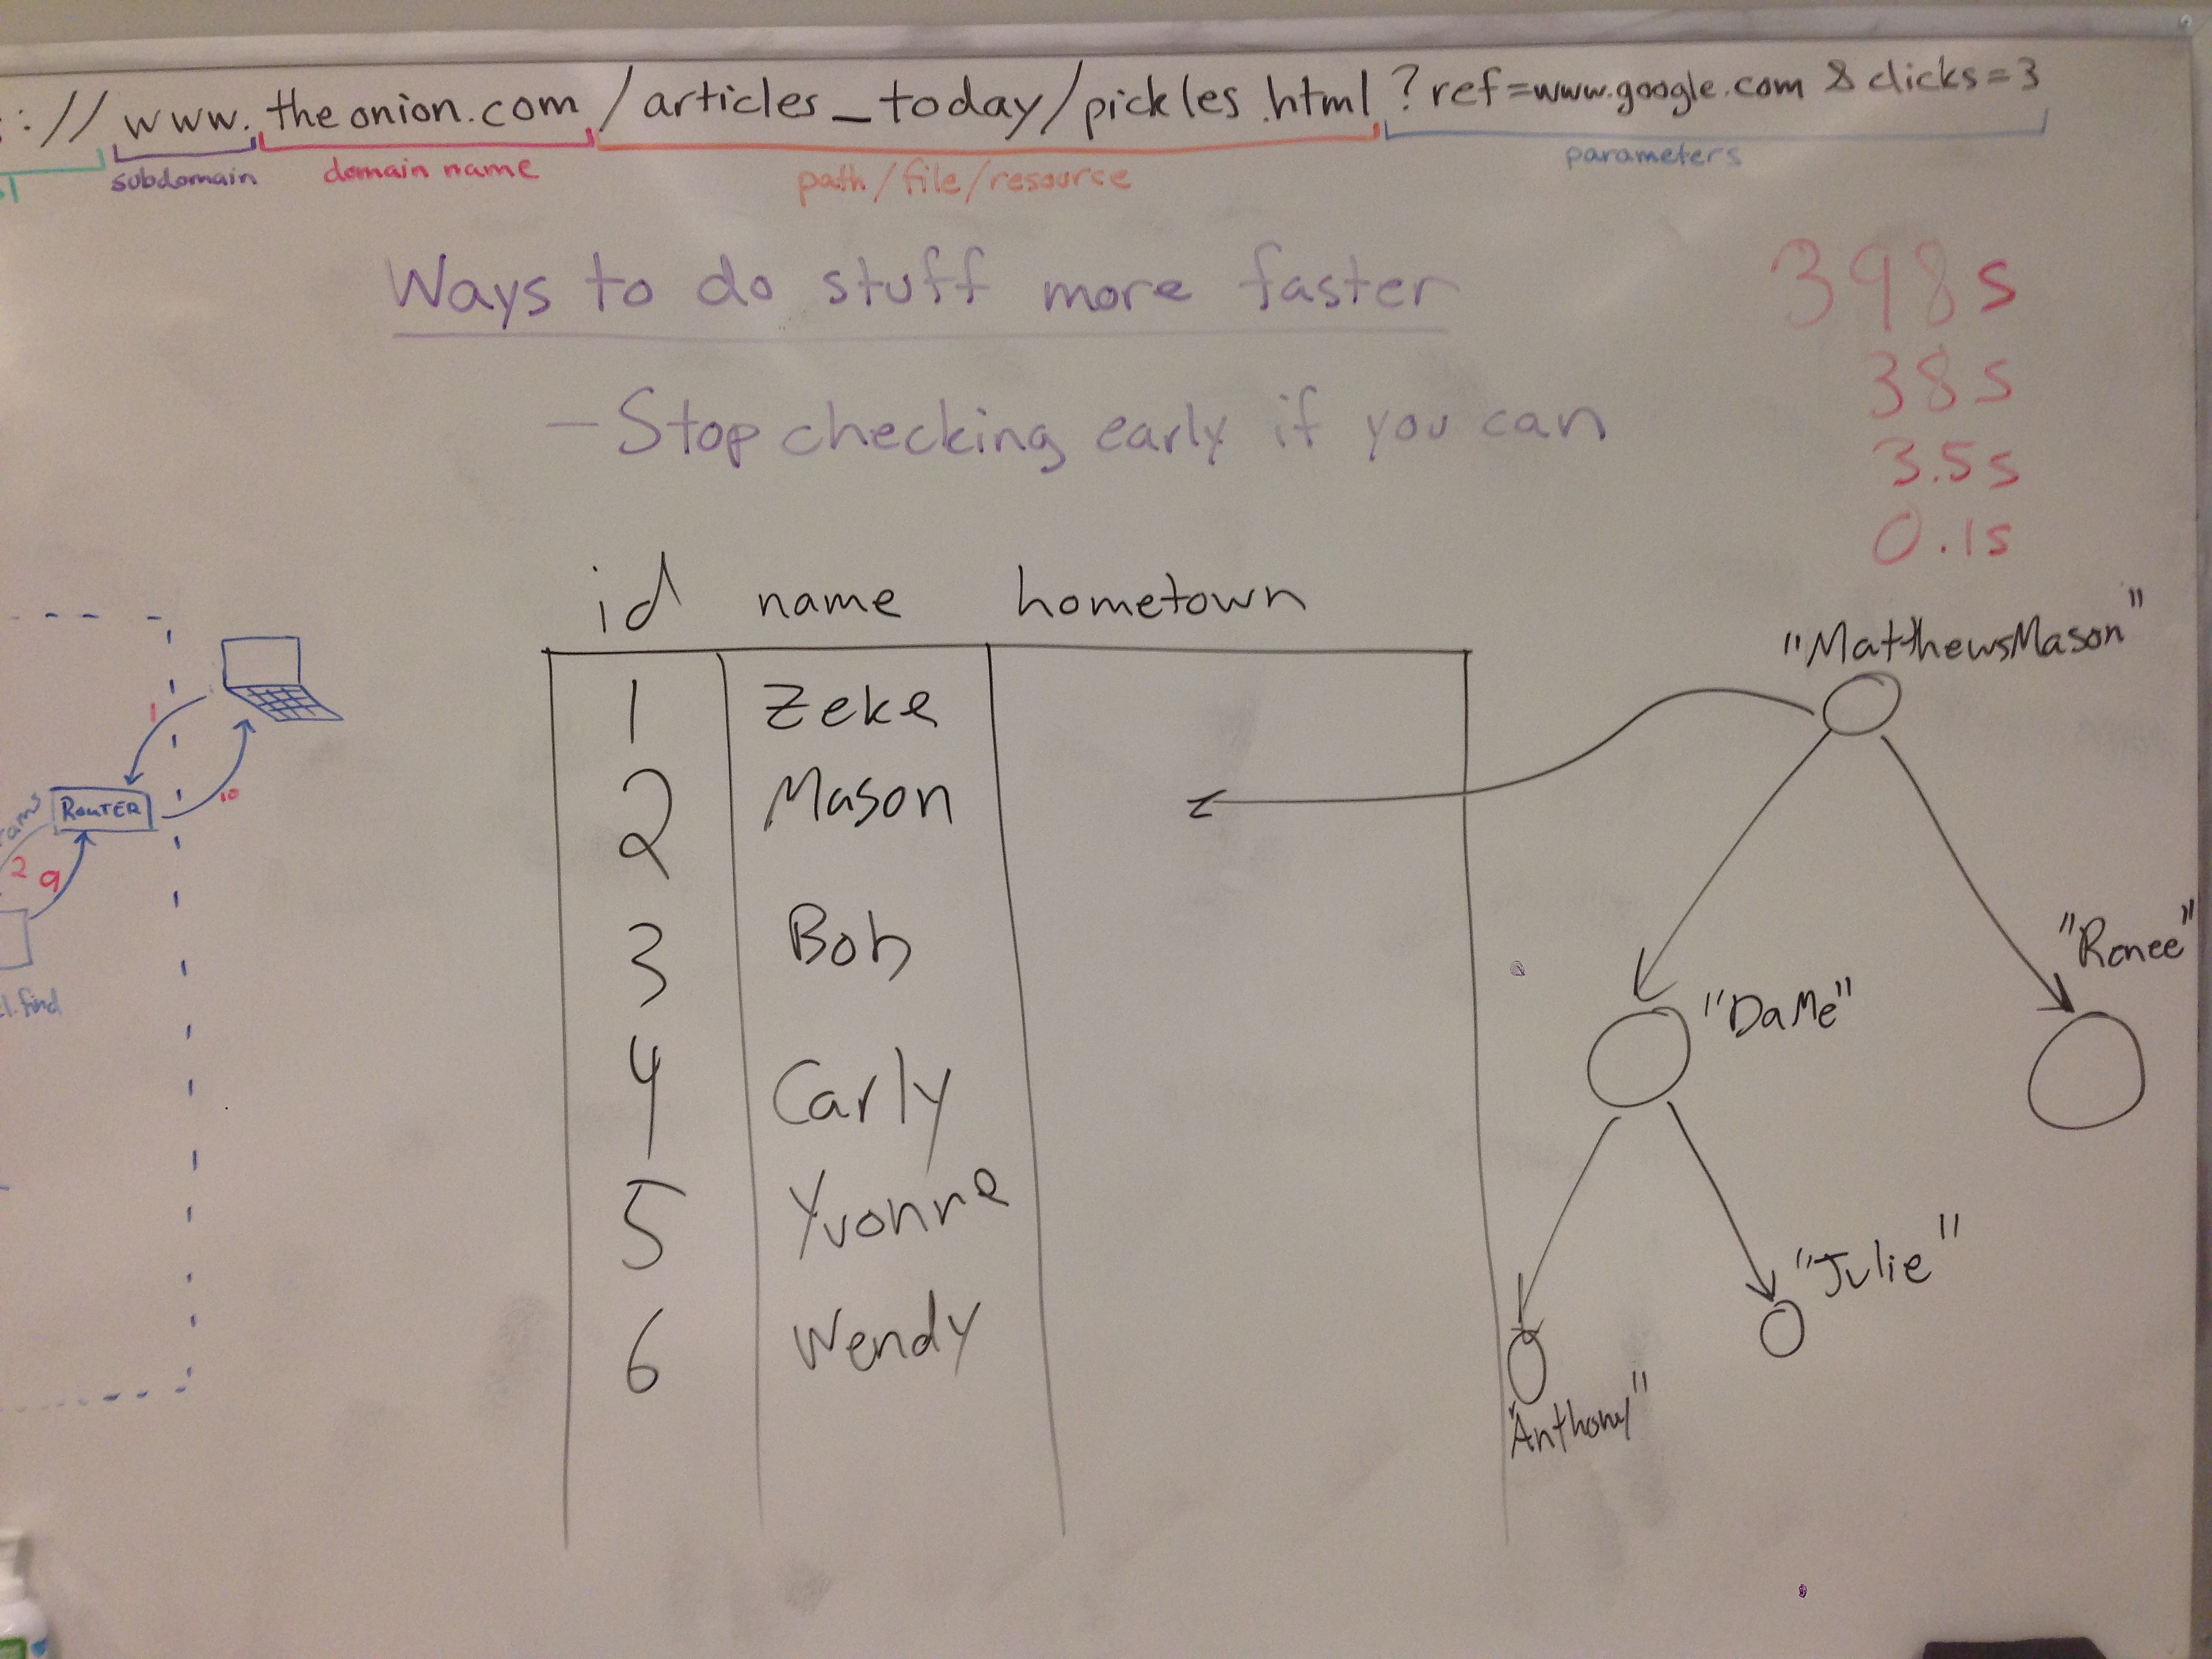 :// www.theonion.com/articles_today/pickles.html?ref=www.google.com & clicks=3
subdomain domain name path/file/resource parameters
Ways to do stuff more faster
- Stop checking early if you can
398s
38s
3.5s
0.1s
id name hometown
1 Zeke
2 Mason
3 Bob
4 Carly
5 Yvonne
6 Wendy
"MatthewsMason"
"DaMe"
"Renee"
"Julie"
"Anthony"
1
ROUTER
10
2 9
.find